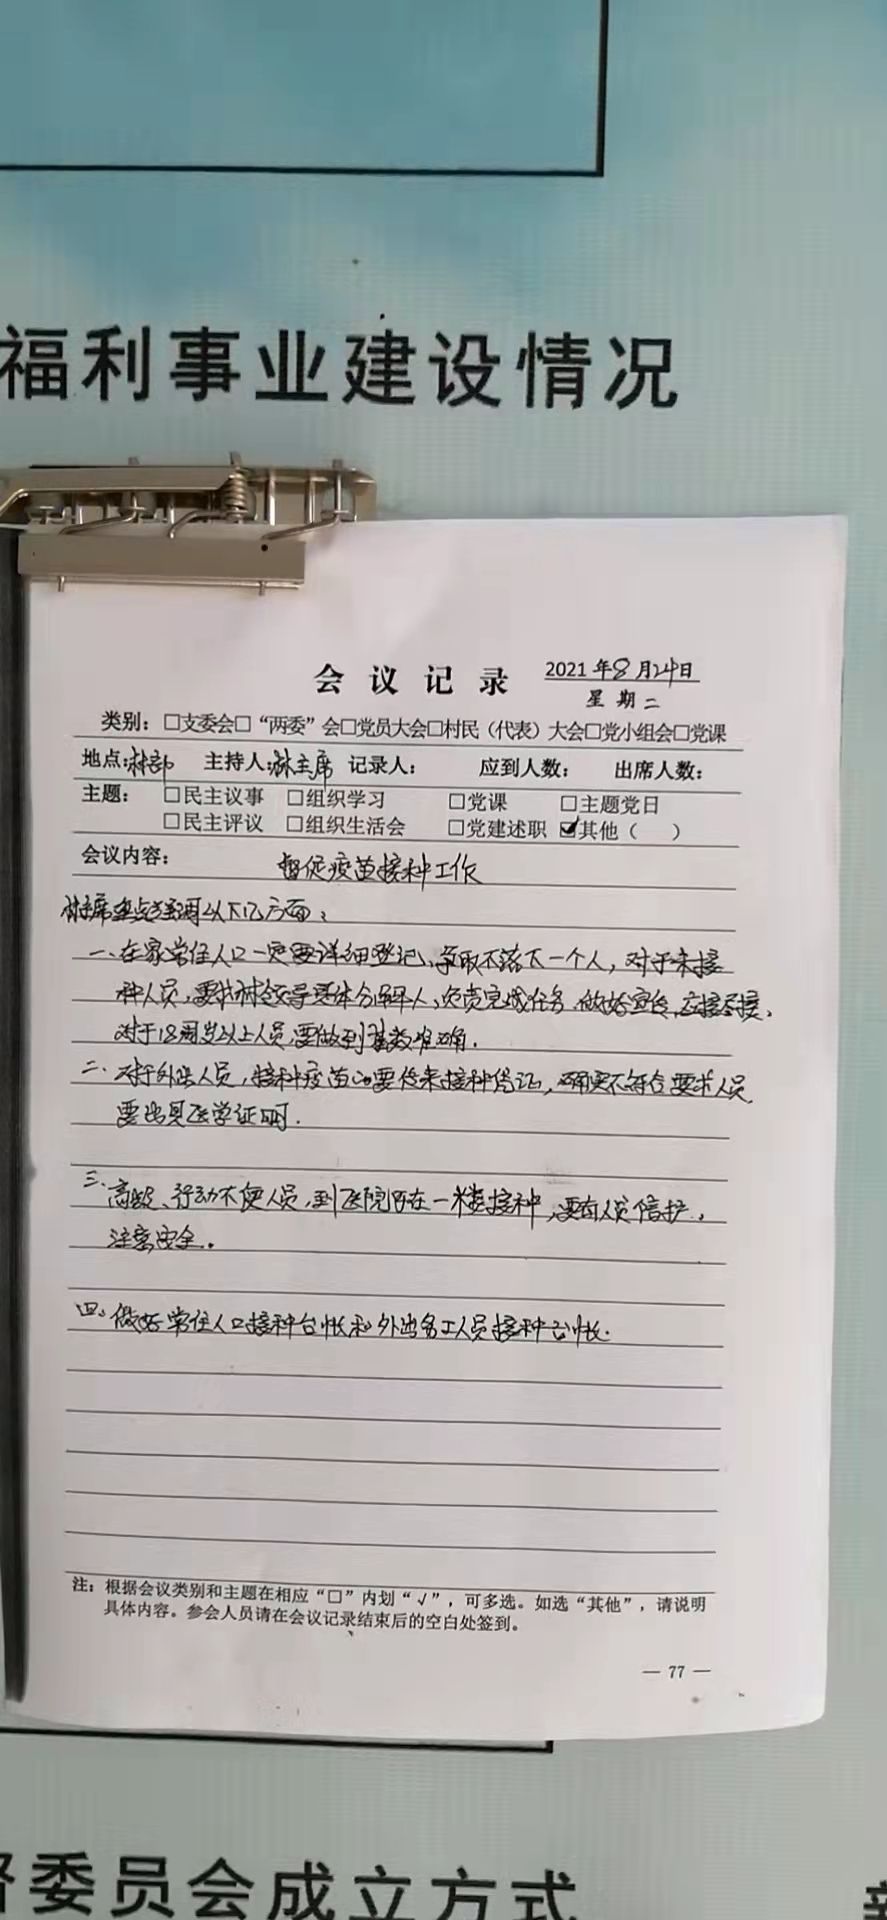 福利事业建设情况
会议记录
2021年8月24日
星期二
类别：□支委会□“两委”会□党员大会□村民（代表）大会□党小组会□党课
地点：村部 主持人：林主席 记录人： 应到人数： 出席人数：
主题： □民主议事 □组织学习 □党课 □主题党日
□民主评议 □组织生活会 □党建述职 ☑其他（ ）
会议内容： 督促疫苗接种工作
林主席重点强调以下几方面：
一、在家常住人口一定要详细登记、争取不落下一个人，对于未接
种人员，要求村领导具体分解人，负责完成任务，做好宣传，应接尽接，
对于18周岁以上人员，要做到基数准确.
二、对于外出人员，接种疫苗的要传来接种凭证，确实不符合要求人员
要出具医学证明.
三、高龄、行动不便人员，到医院可在一楼接种，要有人员陪护，
注意安全。
四、做好常住人口接种台帐和外出务工人员接种台帐.
注：根据会议类别和主题在相应“□”内划“√”，可多选。如选“其他”，请说明
具体内容。参会人员请在会议记录结束后的空白处签到。
— 77 —
督委员会成立方式